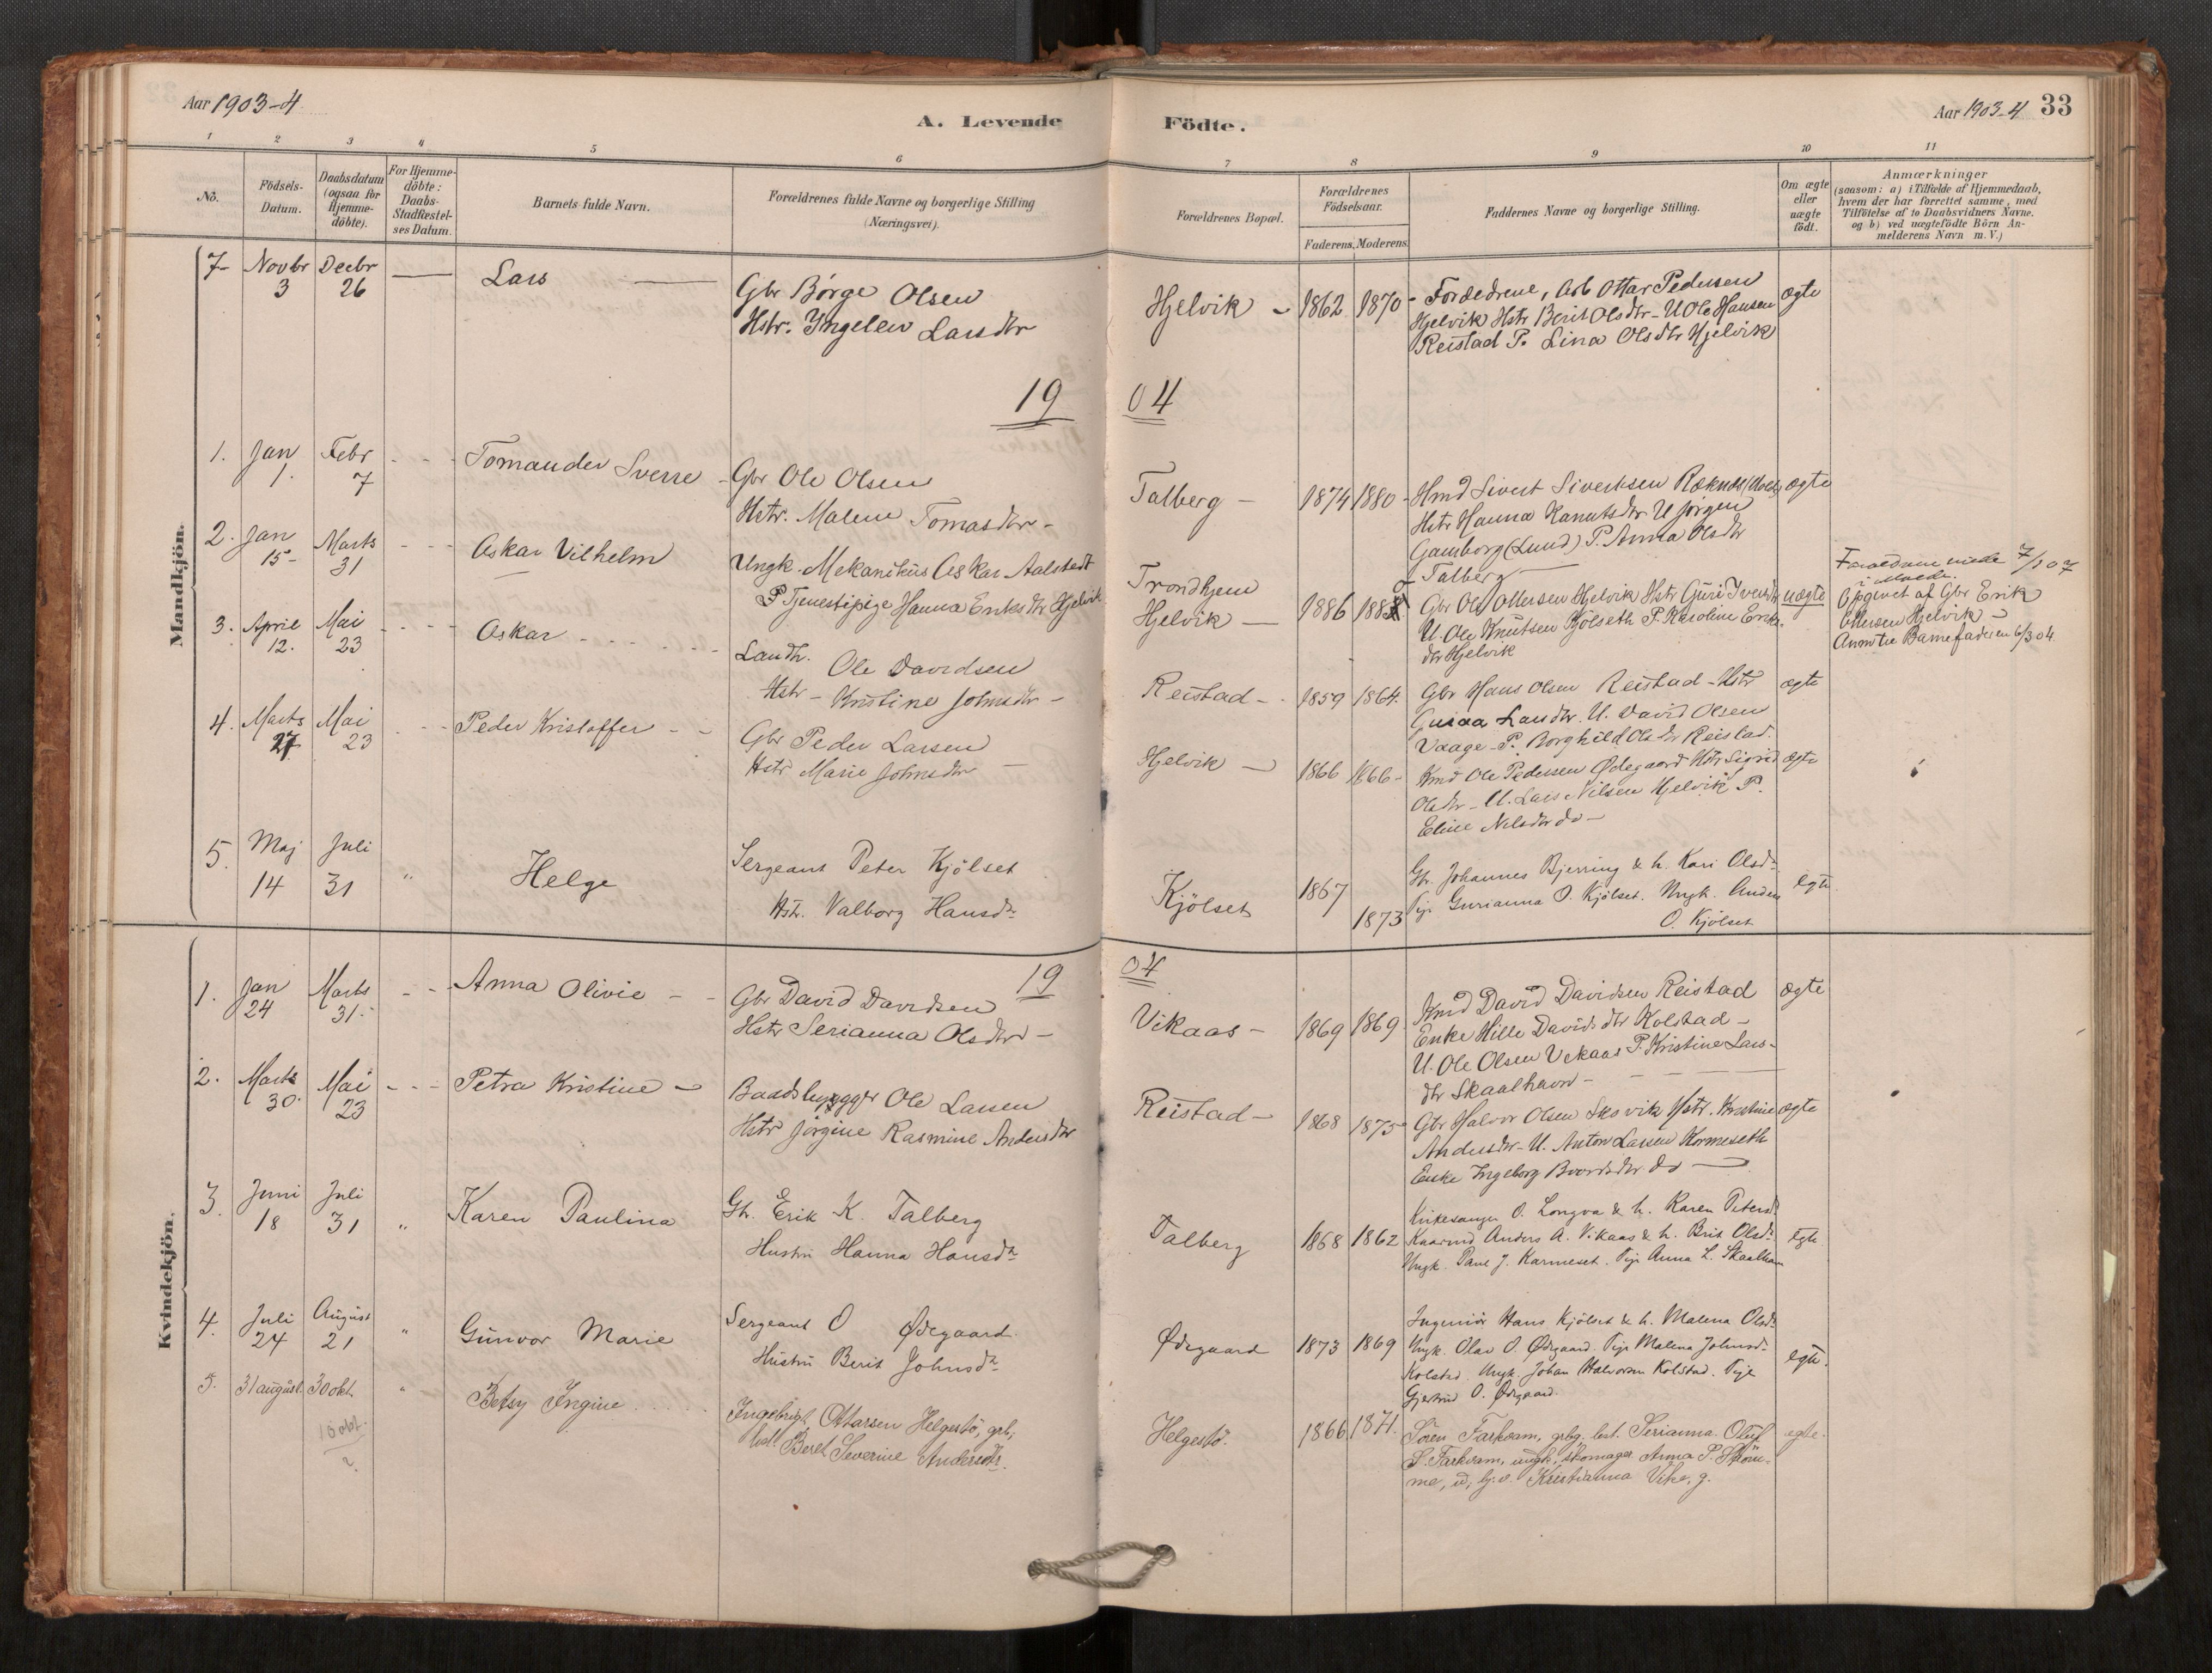 Aar 1903-4
A. Levende
1 2 3 4 5 6
No.
Födsels-
Datum.
Daabsdatum
(ogsaa for
Hjemme-
döbte).
For Hjemme-
döbte:
Daabs-
Stadfæstel-
ses Datum.
Barnets fulde Navn.
Forældrenes fulde Navne og borgerlige Stilling
(Næringsvei).
Mandkjön.
7- Novbr 3 Decbr 26 Lars
Gbr Børge Olsen
Hstr. Ingeleiv Larsdtr
19
1. Jan 1. Febr 7 Tomander Sverre
Gbr Ole Olsen
Hstr. Malene Tomasdtr -
2. Jan 15- Marts 31 Oskar Vilhelm
Ungk. Mekanikus Oskar Aalstedt
P Tjenestepige Hanna Eriksdtr Hjelvik
3. April 12. Mai 23 Oskar
Landh. Ole Davidsen
Hstr - Kristine Johnsdtr -
4. Marts 27 Mai 23 Peder Kristoffer
Gbr Peder Larsen
Hstr Marie Johnsdtr
5. Maj 14 Juli 31 " Helge
Sergeant Peter Kjölset
Hstr. Valborg Hansdr
Kvindekjön.
19
1. Jan 24 Marts 31. Anna Olivie
Gbr David Davidsen
Hstr Serianna Olsdtr -
2. Marts 30. Mai 23 Petra Kristine
Baadsbygger Ole Larsen
Hstr Jørgine Rasmine Andersdtr
3. Juni 18 Juli 31 " Karen Paulina
Gb. Erik K. Talberg
Hustru Hanna Hansdr
4. Juli 24 August 21 " Gunvor Marie
Sergeant O Ødegaard
Hustru Berit Johnsdr
5. 31 august 30 okt. " Betsy Ingine
16 okt.
?
Ingebrigt Ottarsen Helgestö, grb,
Beret Severine Andersdtr.
Födte.
Aar 1903-4 33
7 8 9 10 11
Forældrenes Bopæl.
Forældrenes
Födselsaar.
Faderens. Moderens.
Faddernes Navne og borgerlige Stilling.
Om ægte
eller
uægte
födt.
Anmærkninger
(saasom: a) i Tilfælde af Hjemmedaab,
hvem der har forrettet samme, med
Tilföielse af to Daabsvidners Navne.
og b) ved uægtefödte Börn An-
melderens Navn m.V.)
Hjelvik - 1862 1870 - Forældrene, Arb Ottar Pedersen ægte
Hjelvik Hstr Berit Olsdtr - U Ole Hansen
Reistad P. Lina Olsdtr Hjelvik
04
Talberg - 1874 1880 - Hmd Sivert Sivertsen Røknes ægte
Hstr Hanna Kanutsdtr U Jørgen
Gamborg (Lund) P. Anna Olsdtr
Talberg
Trondhjem
Hjelvik 1886 188
Gbr Ole Ottersen Hjelvik Hstr Guri Iversdtr uægte
U. Ole Knutsen Kjölseth P. Karoline Eriks-
dtr Hjelvik
Forældrene viede 7/3 07
i Molde.
Opgivet af Gbr Erik
Ottersen Hjelvik -
Barnefaderen 6/3 04
Reistad - 1859 1864. Gbr Hans Olsen Reistad - Hstr ægte
Larsdtr. U. David Olsen
Vaage - P. Borghild Olsdtr Reistad.
Hjelvik 1866 1866 - Kmd Ole Pedersen Ødegaard Hstr Sigrid ægte
Olsdtr - U. Lars Nilsen Hjelvik P.
Eline Nilsdtr do -
Kjölset 1867 1873
Gb. Johannes Bjerring & h. Kari Olsdr
Pige Gurianna O. Kjölset. Ungk. Anders egte.
O. Kjölset
04
Vikaas - 1869 1869 Kmd David Davidsen Reistad ægte
Enke Hille Davidsdtr Kolstad -
U. Ole Olsen Vikaas P. Kristine Lars-
dtr Skaalhavn -
Reistad - 1868 1875 Gbr Halvor Olsen Skovik Hstr. Kristine ægte
Andersdtr - U. Anton Larsen Kormeseth
Enke Ingeborg Baardsdtr do
Talberg 1868 1862 Kirkesanger O. Longva & h. Karen Petersdr
Kaarmd Anders A. Vikaas & h. Brit Olsdr egte.
Ungk. Paul J. Karmeset. Pige Anna L. Skaalhavn
Ødegaard 1873 1869 Ingeniör Hans Kjölset & h. Malena Olsdr
Ungk. Olav O. Ødegaard. Pige Malena Johnsdr egte.
Kolstad. Ungk. Johan Halvorsen Kolstad. Pige
Gjertrud O. Ødegaard.
Helgestö. 1866 1871. Sören Farkvam, grbg. Serianna. Oluf egte.
S. Farkvam, ungk, skomager Anna P. Ström-
me, Kristianna Vike, g.